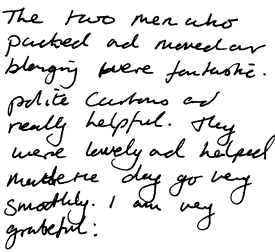 The two men who
packed and moved our
blongings were fantastic.
polite Curteous and
really helpful. They
were lovely and helped
make the day go very
smoothly. I am very
grateful: